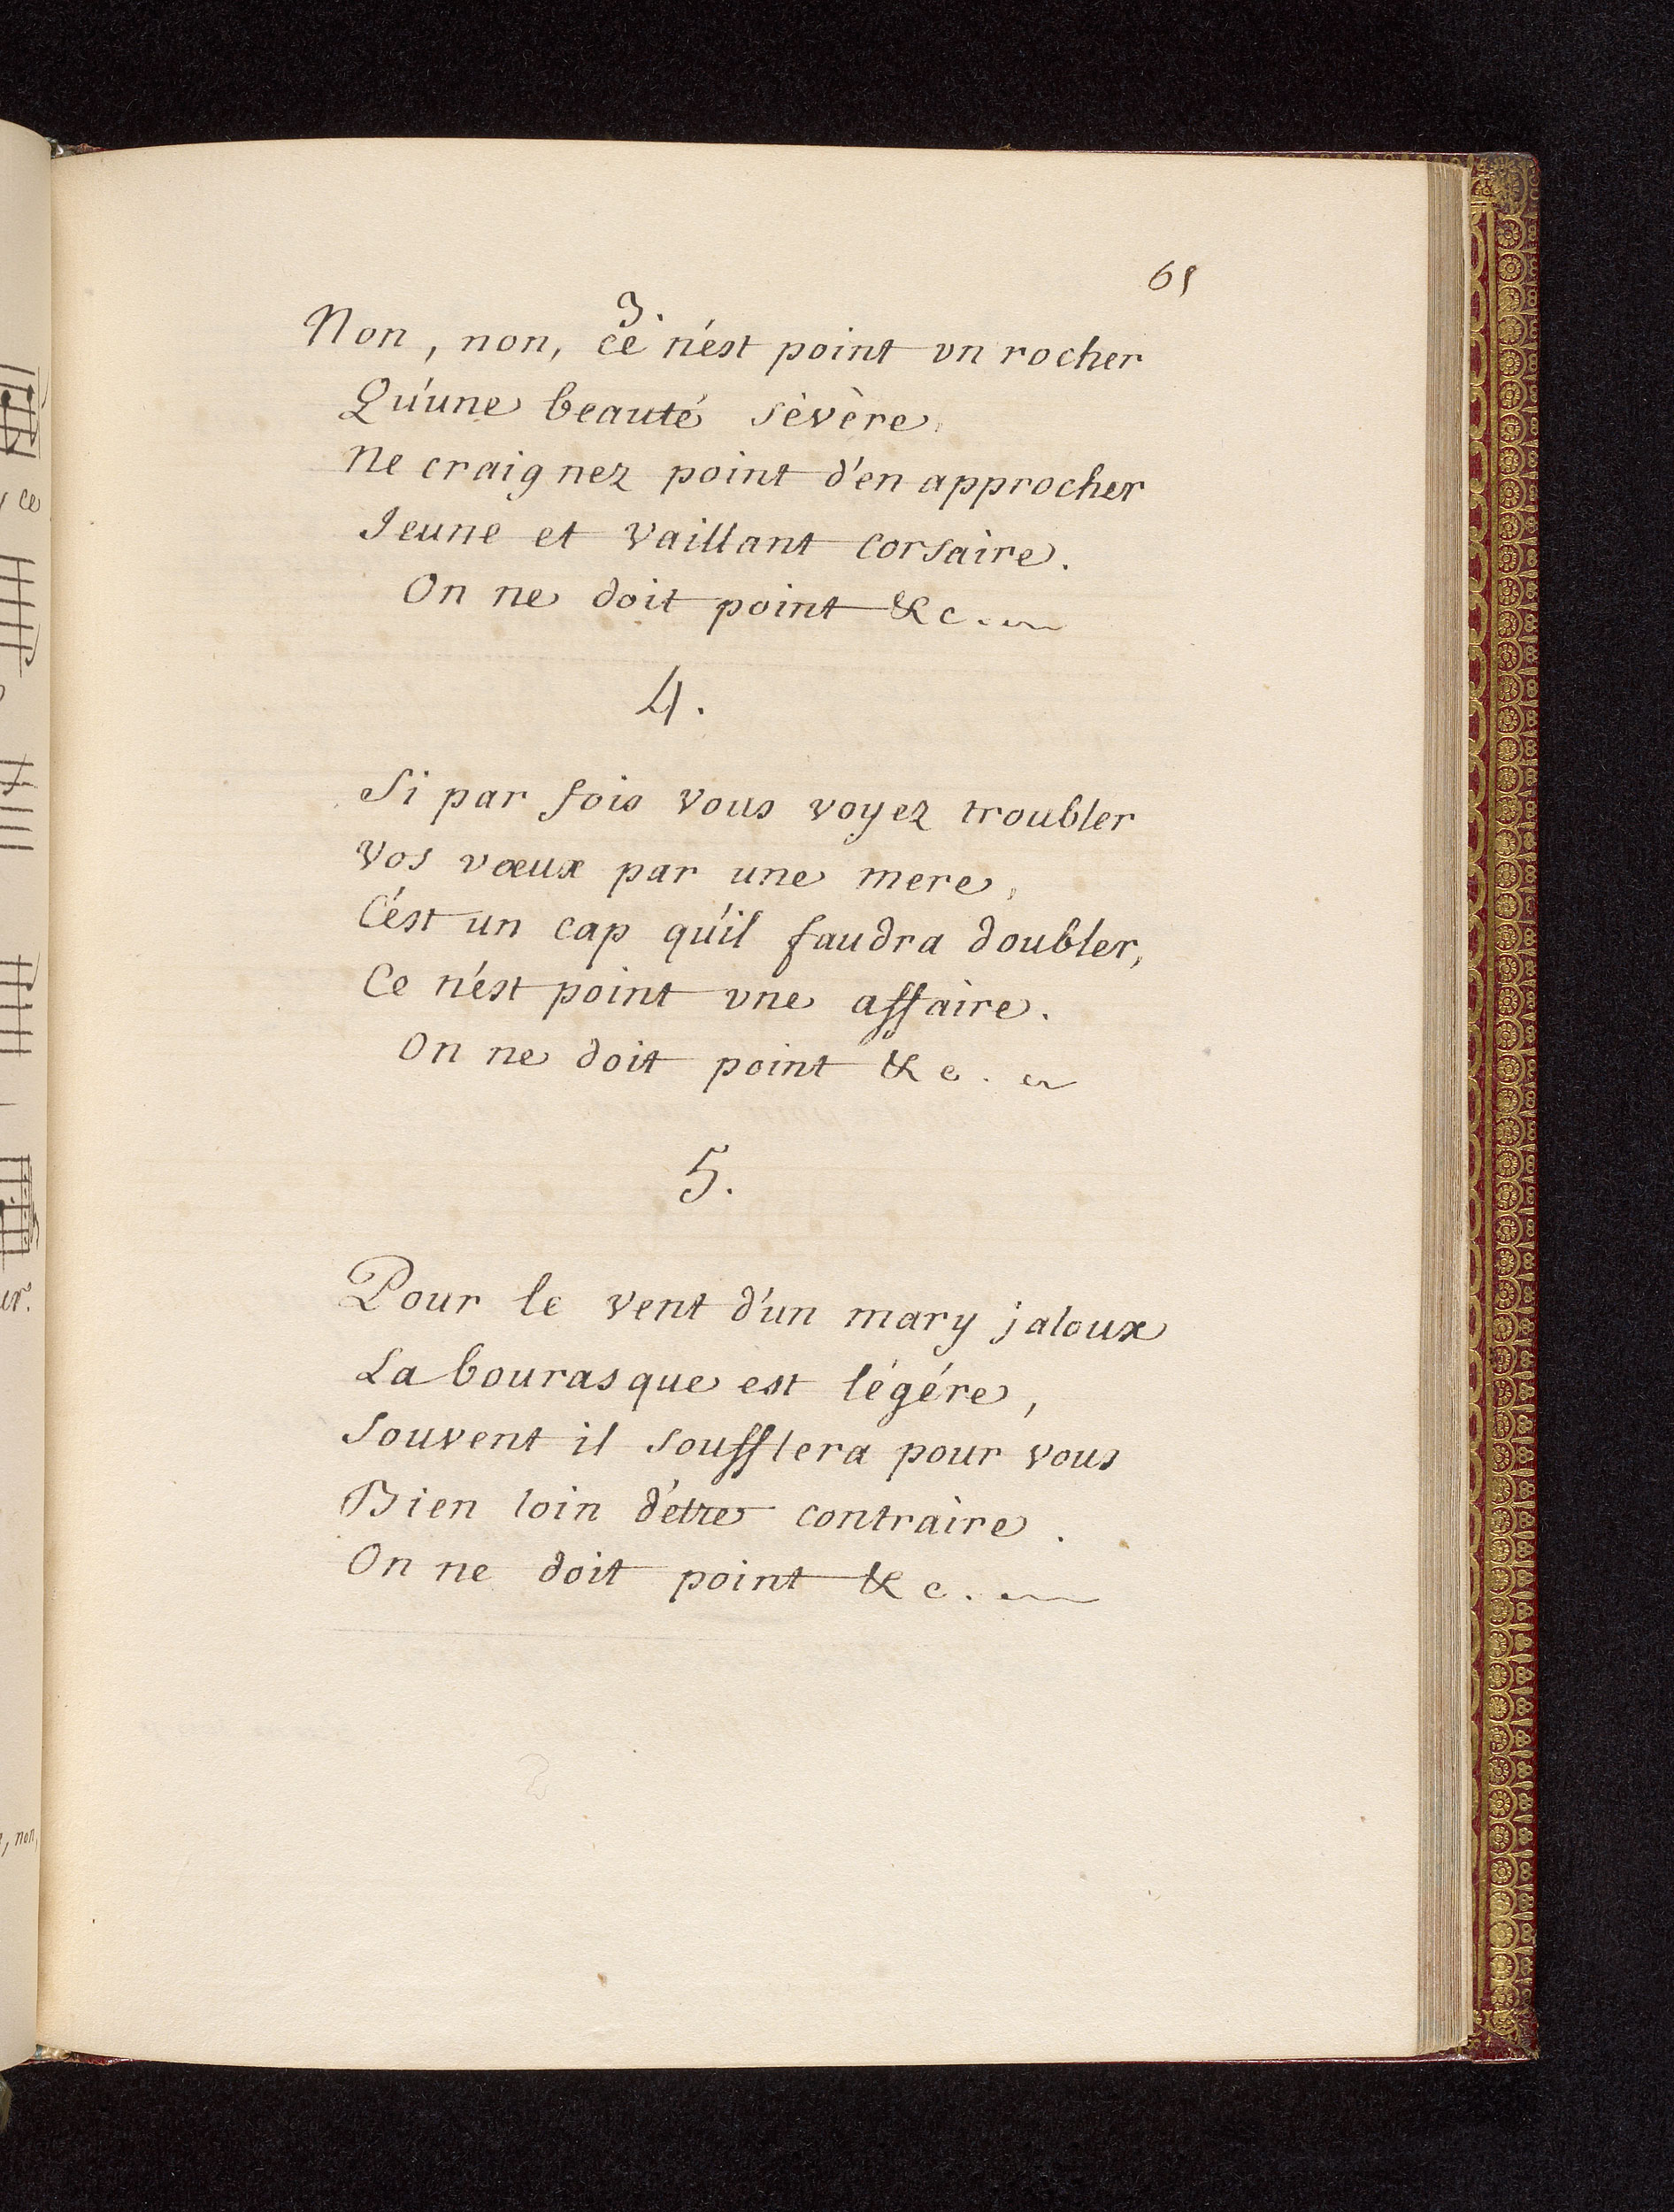 65
3.
Non, non, ce n'est point vn rocher
Qu'une beauté sèvère,
Ne craignez point d'en approcher
Jeune et vaillant corsaire.
On ne doit point &c.
4.
Si par fois vous voyez troubler
Vos vœux par une mere,
C'est un cap qu'il faudra doubler,
Ce n'est point vne affaire.
On ne doit point &c.
5.
Pour le vent d'un mary jaloux
La bourasque est légére,
Souvent il soufflera pour vous
Bien loin d'etre contraire.
On ne doit point &c.
ce
ur.
, non,